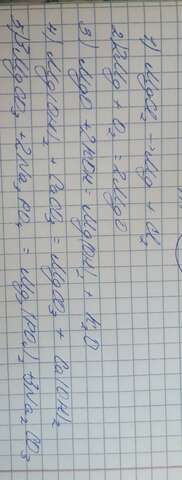 1) MgCl2 → Mg + Cl2
2) 2Mg + O2 = 2MgO
3) MgO + 2KOH = Mg(OH)2 + K2O
4) Mg(OH)2 + CaCO3 = MgCO3 + Ca(OH)2
5) 3MgCO3 + 2Na3PO4 = Mg3(PO4)2 + 3Na2CO3